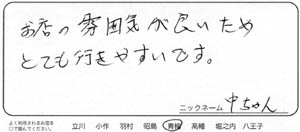 お店の雰囲気が良いため
とても行きやすいです。
ニックネーム 中ちゃん
よく利用されるお店を
○で囲んでください。 立川 小作 羽村 昭島 青梅 高幡 堀之内 八王子